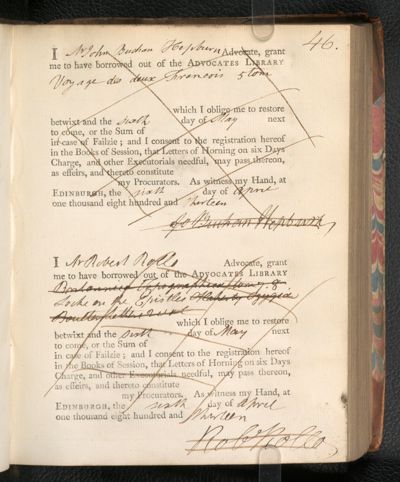 46.
I Mr John Buchan Hepburn Advocate, grant
me to have borrowed out of the ADVOCATES LIBRARY
Voyage des deux Francois 5 tom
which I oblige me to restore
betwixt and the sixth day of May next
to come, or the Sum of
in case of Failzie; and I consent to the registration hereof
in the Books of Session, that Letters of Horning on six Days
Charge, and other Executorials needful, may pass thereon,
as effeirs, and thereto constitute
my Procurators. As witness my Hand, at
EDINBURGH, the sixth day of April
one thousand eight hundred and thirteen
Jo Buchan Hepburn
I Mr Robert Rollo Advocate, grant
me to have borrowed out of the ADVOCATES LIBRARY
Locke on the Epistles
which I oblige me to restore
betwixt and the sixth day of May next
to come, or the Sum of
in case of Failzie; and I consent to the registration hereof
in the Books of Session, that Letters of Horning on six Days
Charge, and other Executorials needful, may pass thereon,
as effeirs, and thereto constitute
my Procurators. As witness my Hand, at
EDINBURGH, the sixth day of April
one thousand eight hundred and thirteen
Rob Rollo